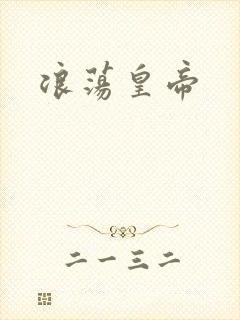 浪荡皇帝
二一三二